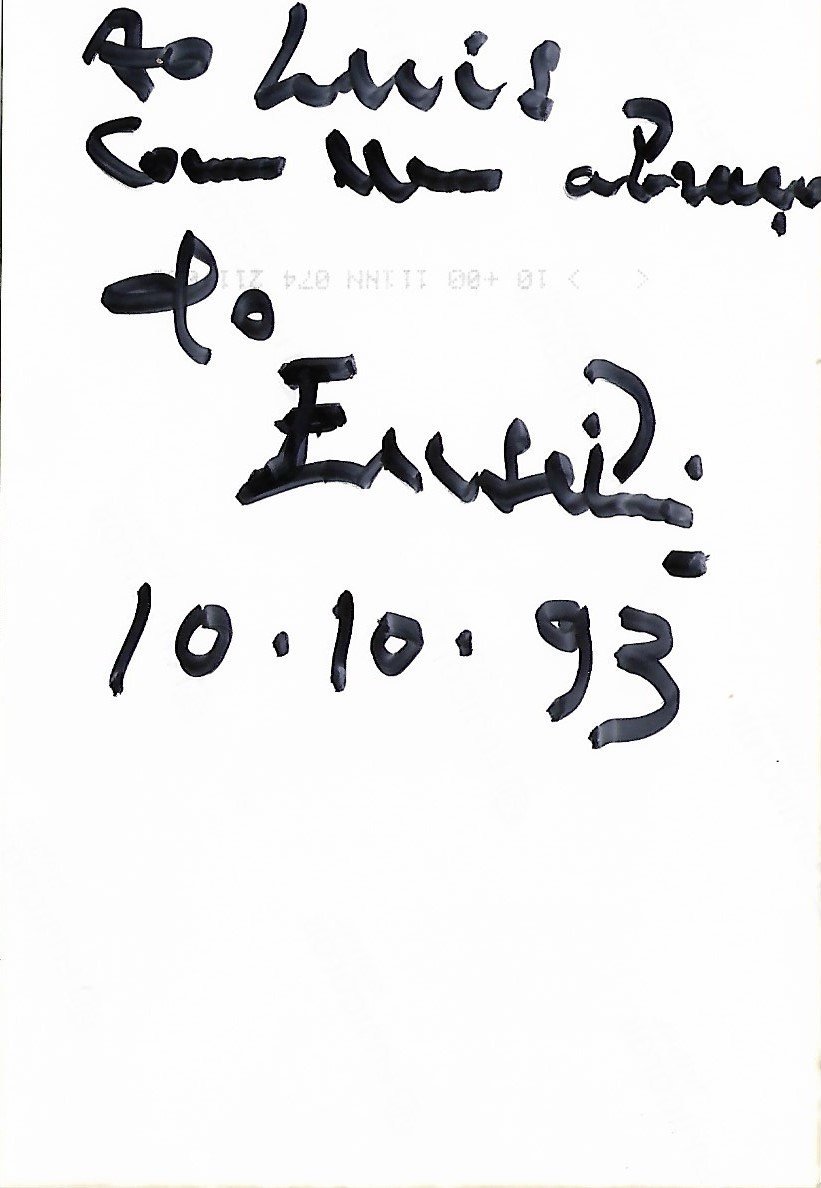 Ao Luis
Com um abraço
do
10.10.93